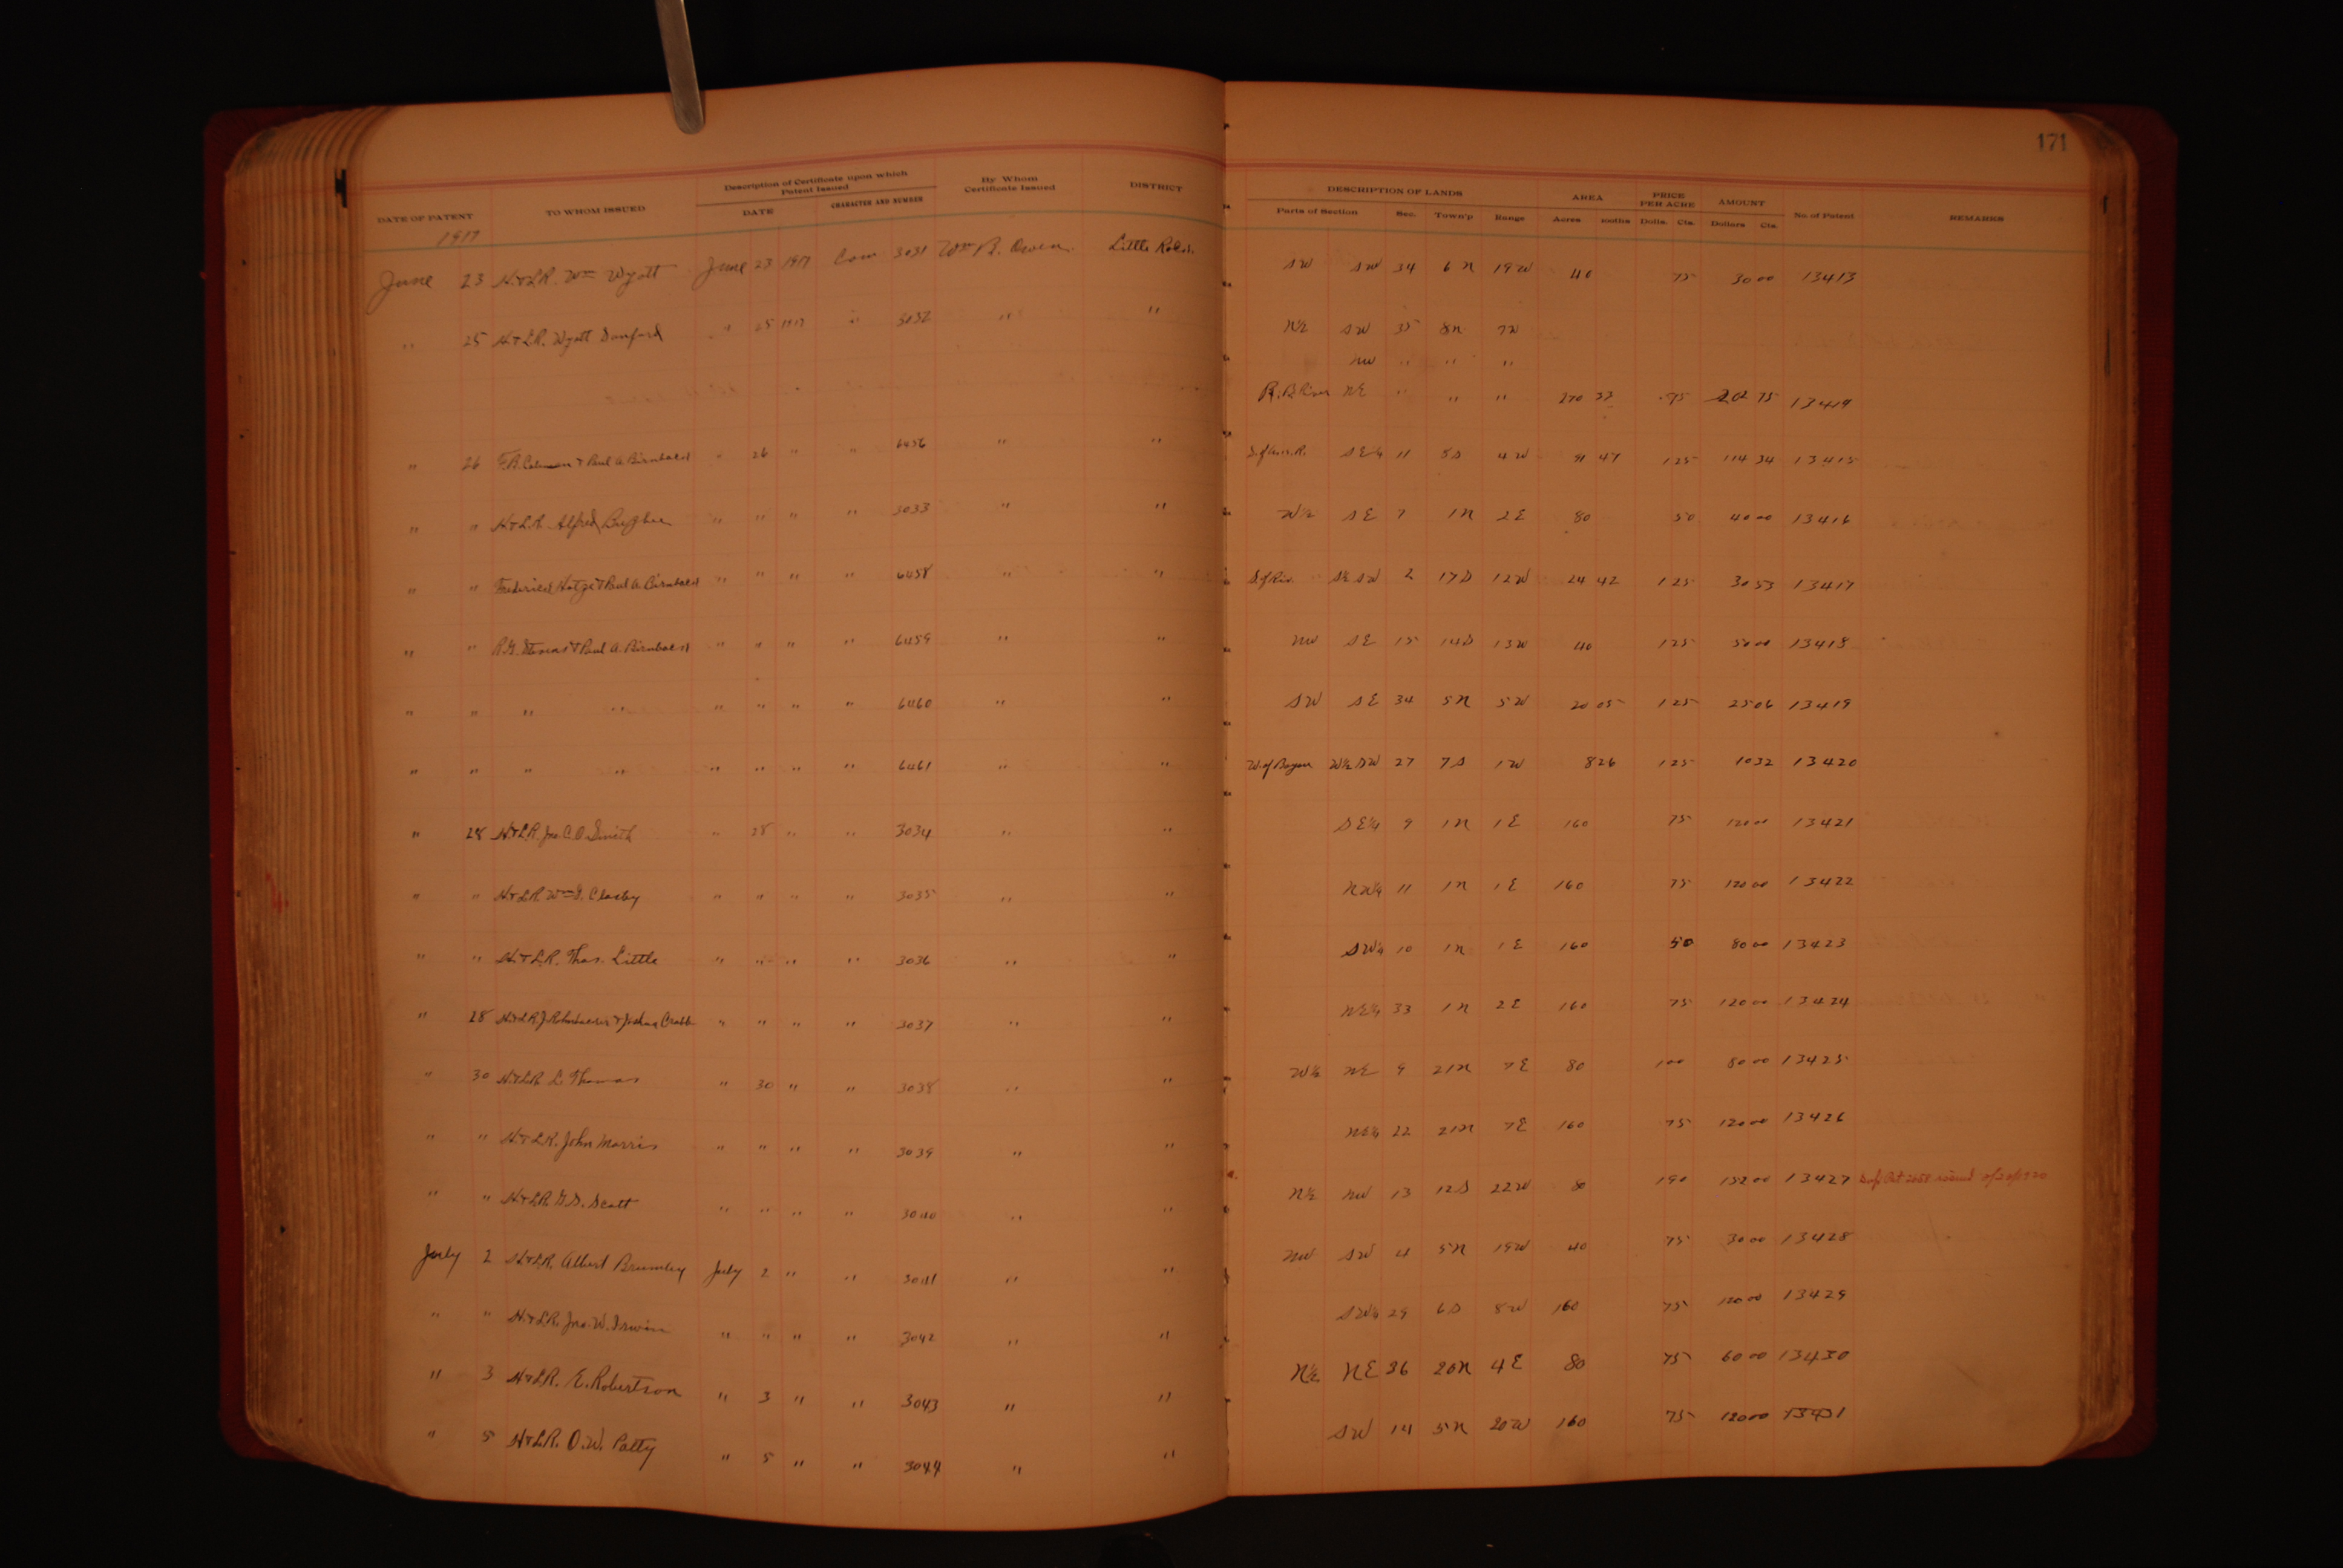 171
DATE OF PATENT TO WHOM ISSUED Description of Certificate upon which Patent Issued DATE CHARACTER AND NUMBER By Whom Certificate Issued DISTRICT DESCRIPTION OF LANDS Parts of Section Sec. Town'p Range AREA Acres 100ths PRICE PER ACRE Dolls. Cts. AMOUNT Dollars Cts. No. of Patent REMARKS
1917
June 23 H.&L.R. Wm Wyatt June 23 1917 Com 3031 Wm B. Owen Little Rock SW SW 34 6N 19W 40 75 30 00 13413
" 25 H.&L.R. Wyatt Sanford " 25 1917 " 3032 " " N½ SW 35 8N 7W
NW " " "
NE " " " 270 33 75 202 75 13414
" 26 & Paul A. Birnbach " 26 " " 6456 " " SE¼ 11 8S 4W 91 47 1 25 114 34 13415
" " H.&L.R. Alfred " " " " 3033 " " W½ SE 7 1N 2E 80 50 40 00 13416
" " Frederick Hotze & Paul A. Birnbach " " " " 6458 " " S. of Riv. S½ SW 2 17S 12W 24 42 1 25 30 53 13417
" " & Paul A. Birnbach " " " " 6459 " " NW SE 15 14S 13W 40 1 25 50 00 13418
" " " " " " " " 6460 " " SW SE 34 5N 5W 20 05 1 25 25 06 13419
" " " " " " " " 6461 " " W. of Bayou W½ SW 27 7S 1W 8 26 1 25 10 32 13420
" 28 H.&L.R. Jno. C. O. Smith " 28 " " 3034 " " SE¼ 9 1N 1E 160 75 120 00 13421
" " H.&L.R. Wm " " " " 3035 " " NW¼ 11 1N 1E 160 75 120 00 13422
" " H.&L.R. Thos. Little " " " " 3036 " " SW¼ 10 1N 1E 160 50 80 00 13423
" 28 H.&L.R. & Joshua Crabb " " " " 3037 " " NE¼ 33 1N 2E 160 75 120 00 13424
" 30 H.&L.R. L. Thomas " 30 " " 3038 " " W½ NE 9 21N 7E 80 1 00 80 00 13425
" " H.&L.R. John Morris " " " " 3039 " " NE¼ 22 21N 7E 160 75 120 00 13426
" " H.&L.R. G. S. Scott " " " " 3040 " " N½ NW 13 12S 22W 80 1 90 152 00 13427
July 2 H.&L.R. Albert Brumley July 2 " " 3041 " " NW SW 4 5N 19W 40 75 30 00 13428
" " H.&L.R. Jno. W. Irwin " " " " 3042 " " SW¼ 29 6S 8W 160 75 120 00 13429
" 3 H.&L.R. E. Robertson " 3 " " 3043 " " N½ NE 36 20N 4E 80 75 60 00 13430
" 5 H.&L.R. O. W. Patty " 5 " " 3044 " " SW 14 5N 20W 160 75 120 00 13431